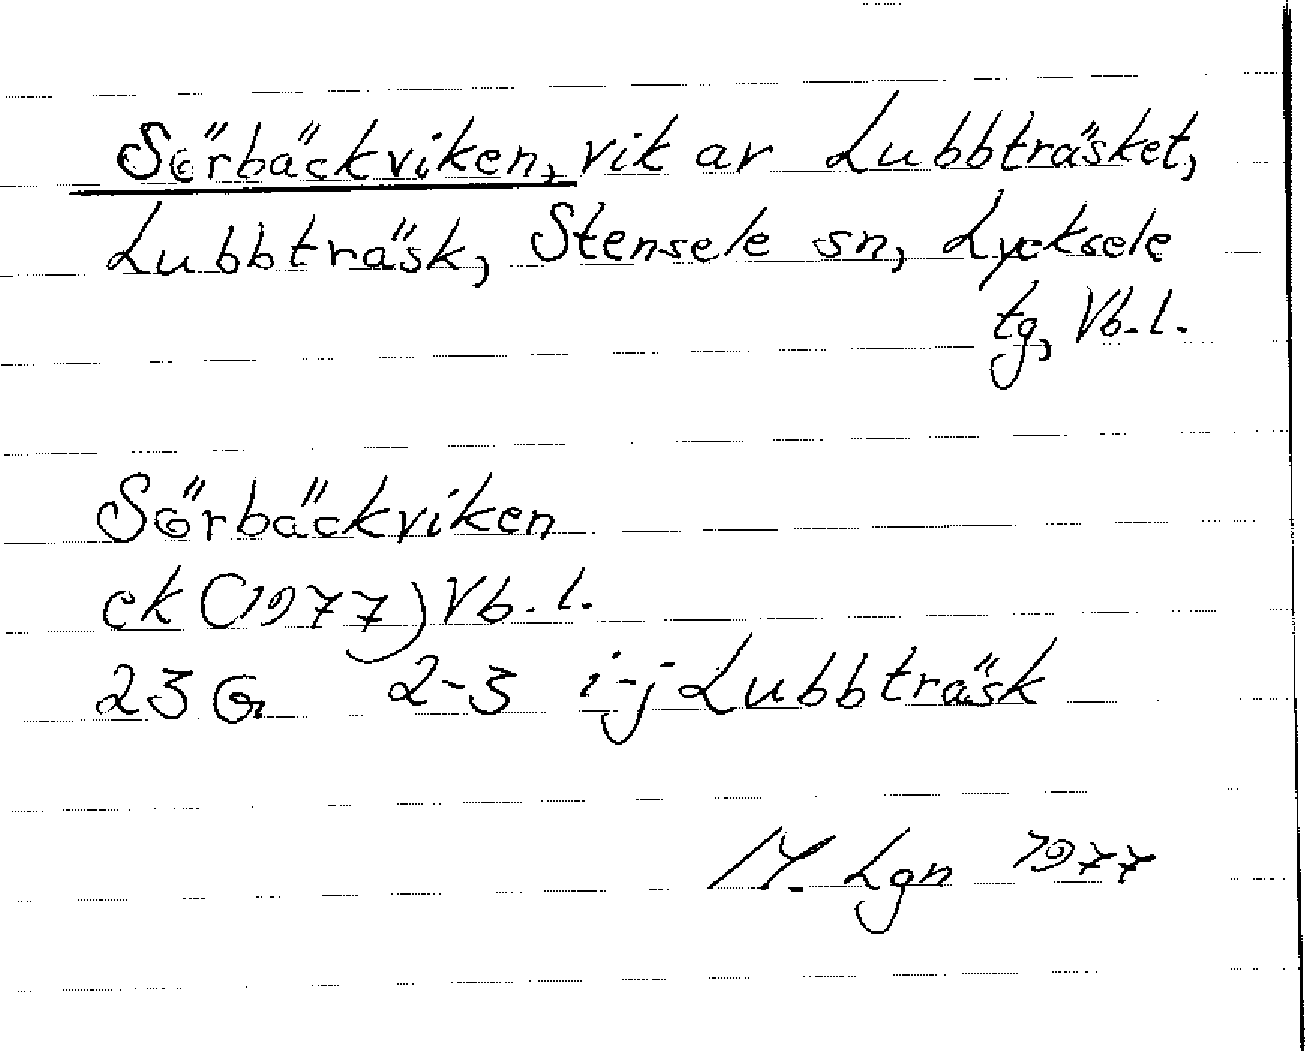 Sörbäckviken, vik av Lubbträsket,
Lubbträsk, Stensele sn, Lycksele
tg, Vb.l.
Sörbäckviken
ek (1977) Vb.l.
23 G 2-3 i-j Lubbträsk
M. Lgn 1977